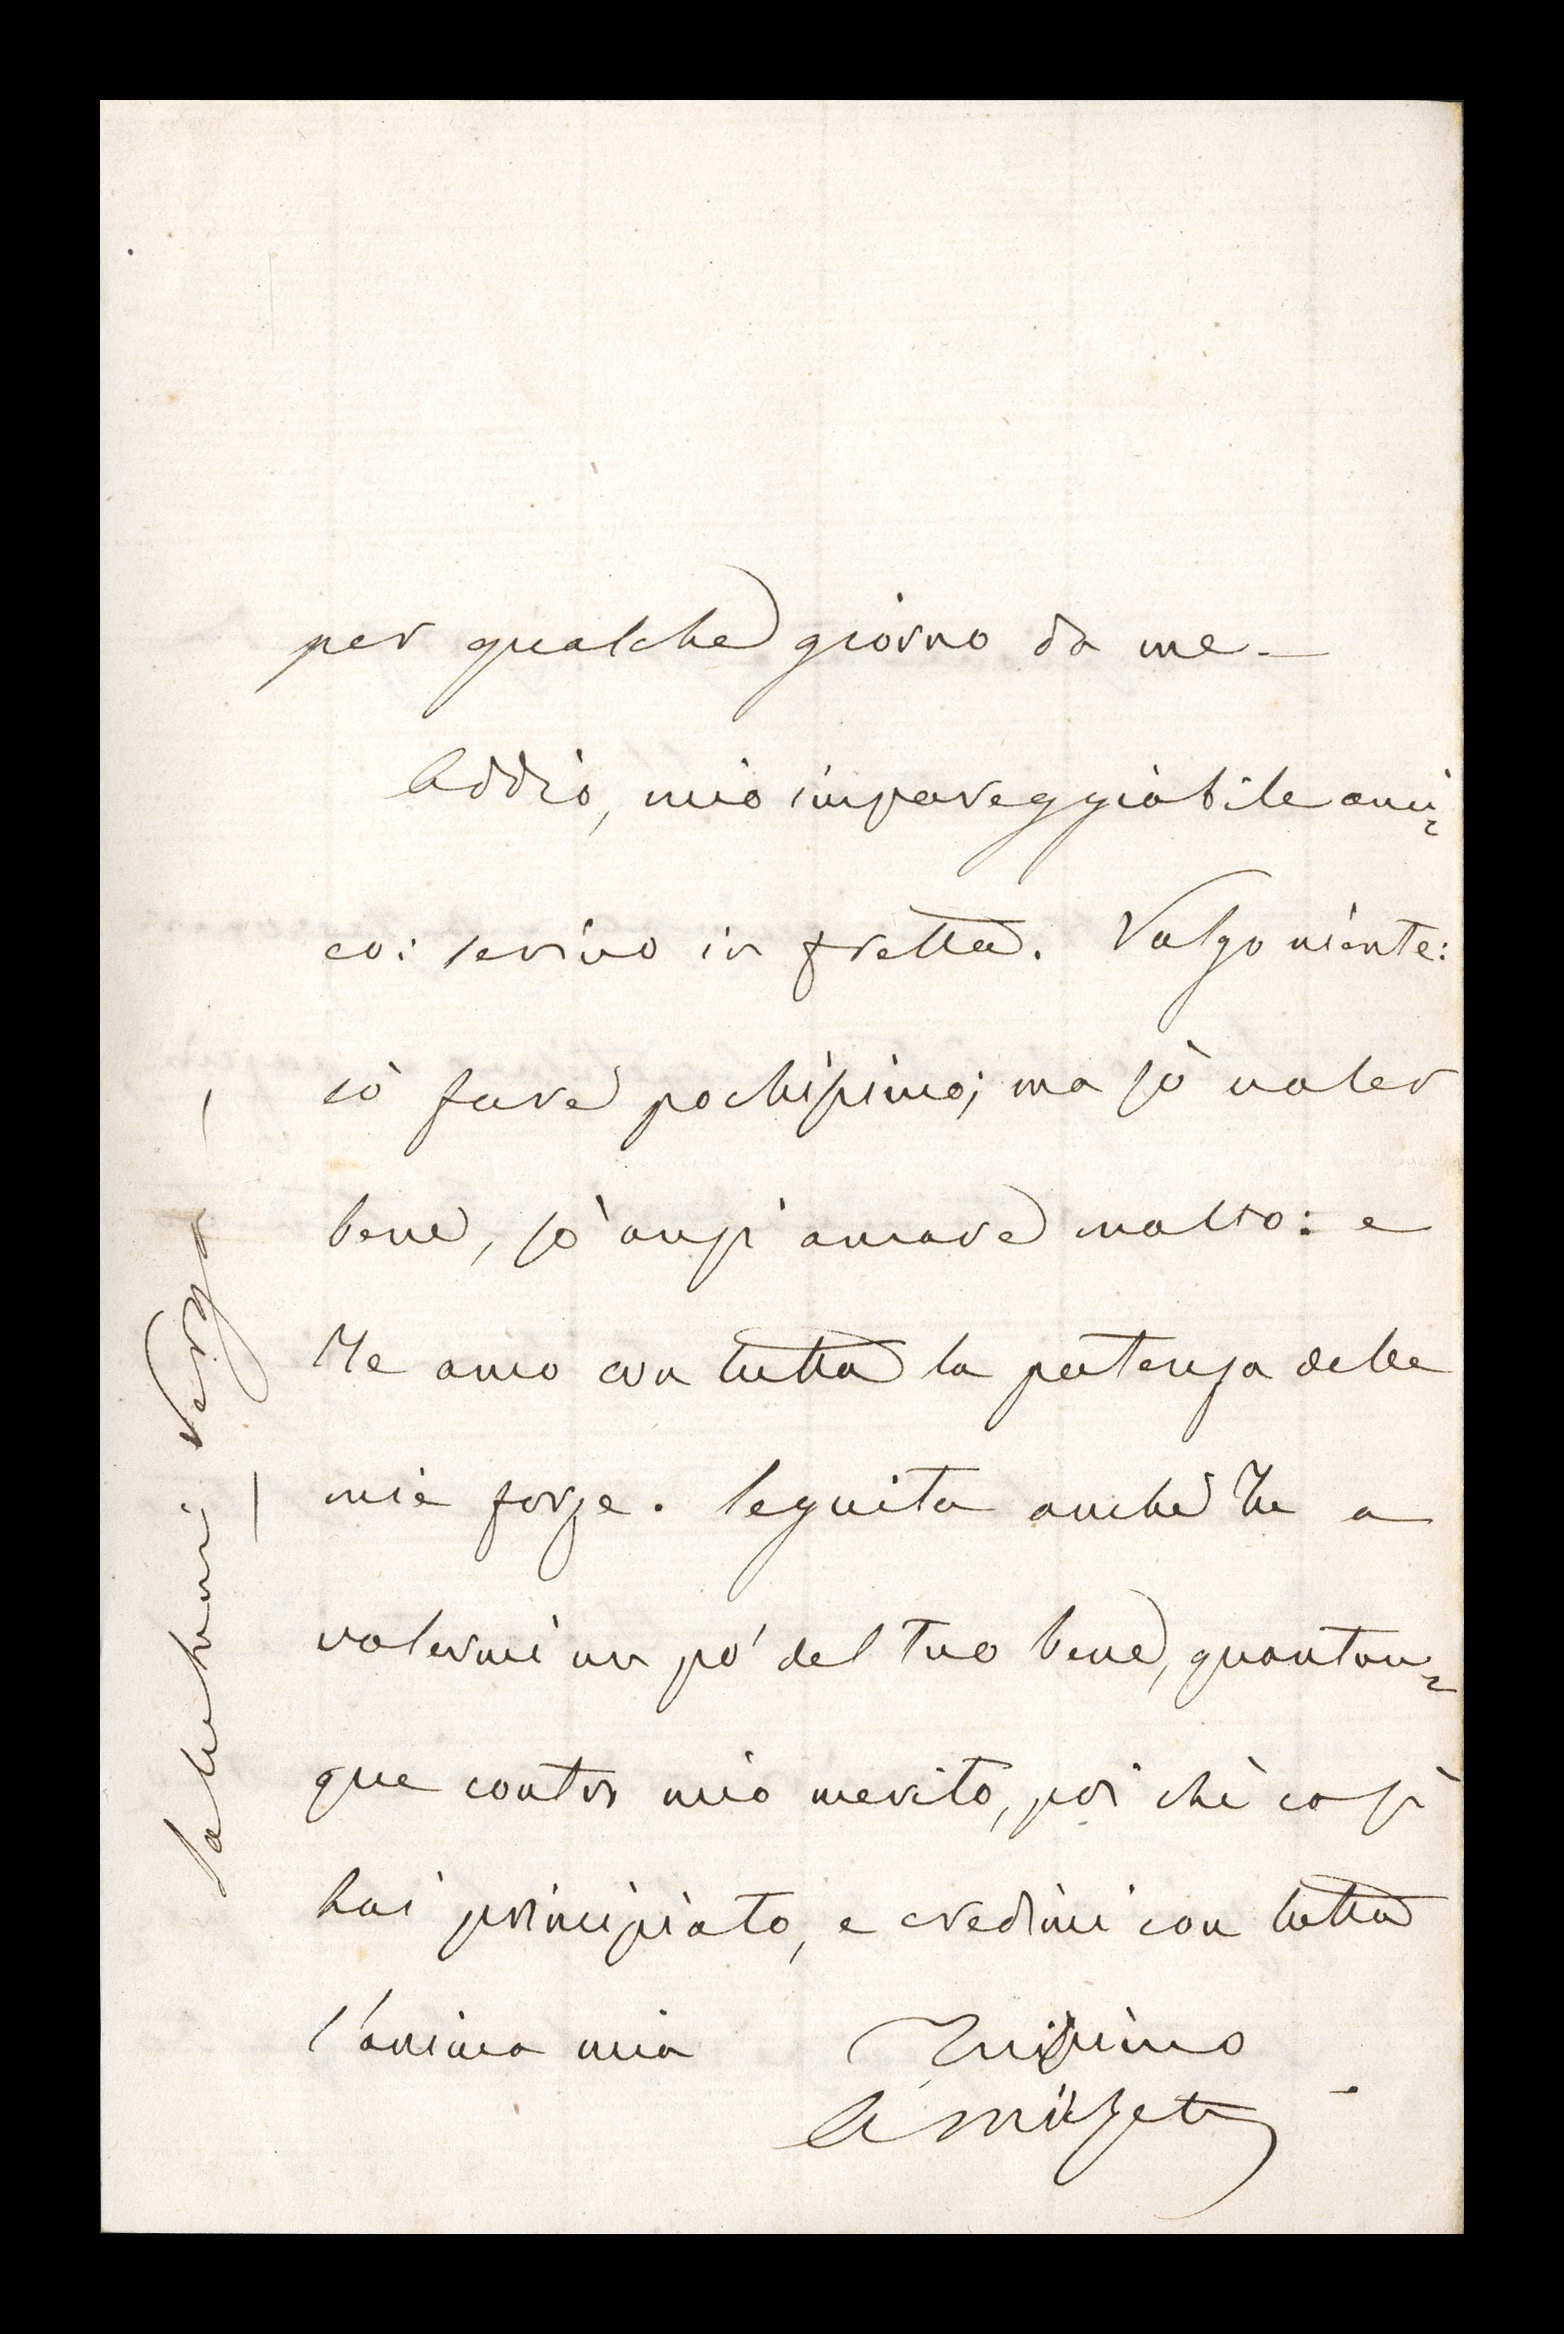 per qualche giorno da me.—
Addio, mio impareggiabile ami=
co: scrivo in fretta. Valgo niente:
sò fare pochissimo; ma sò voler
bene, sò anzi amare molto: e
Te amo con tutta la potenza delle
mie forze. Seguita anche Tu a
volermi un pò del Tuo bene, quantun=
que contro mio merito, poi chè così
hai principiato, e credimi con tutta
l'anima mia Tuissimo
Salutami Verga —